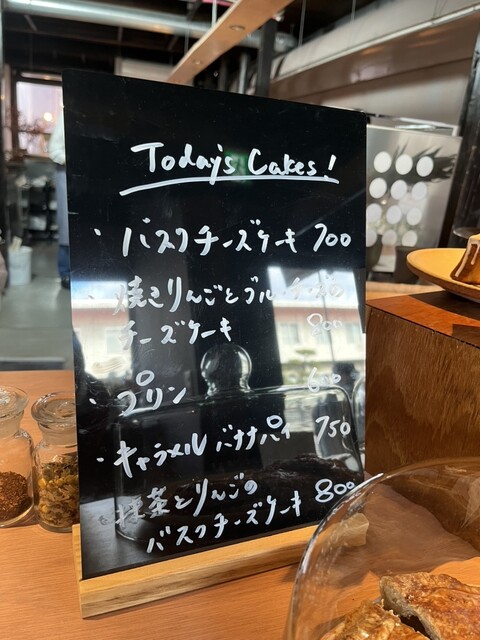 Today's Cakes!
・バスクチーズケーキ 700
・焼きりんごとブルーチーズの
チーズケーキ 800
・プリン 600
・キャラメルバナナパイ 750
・抹茶とりんごの
バスクチーズケーキ 800